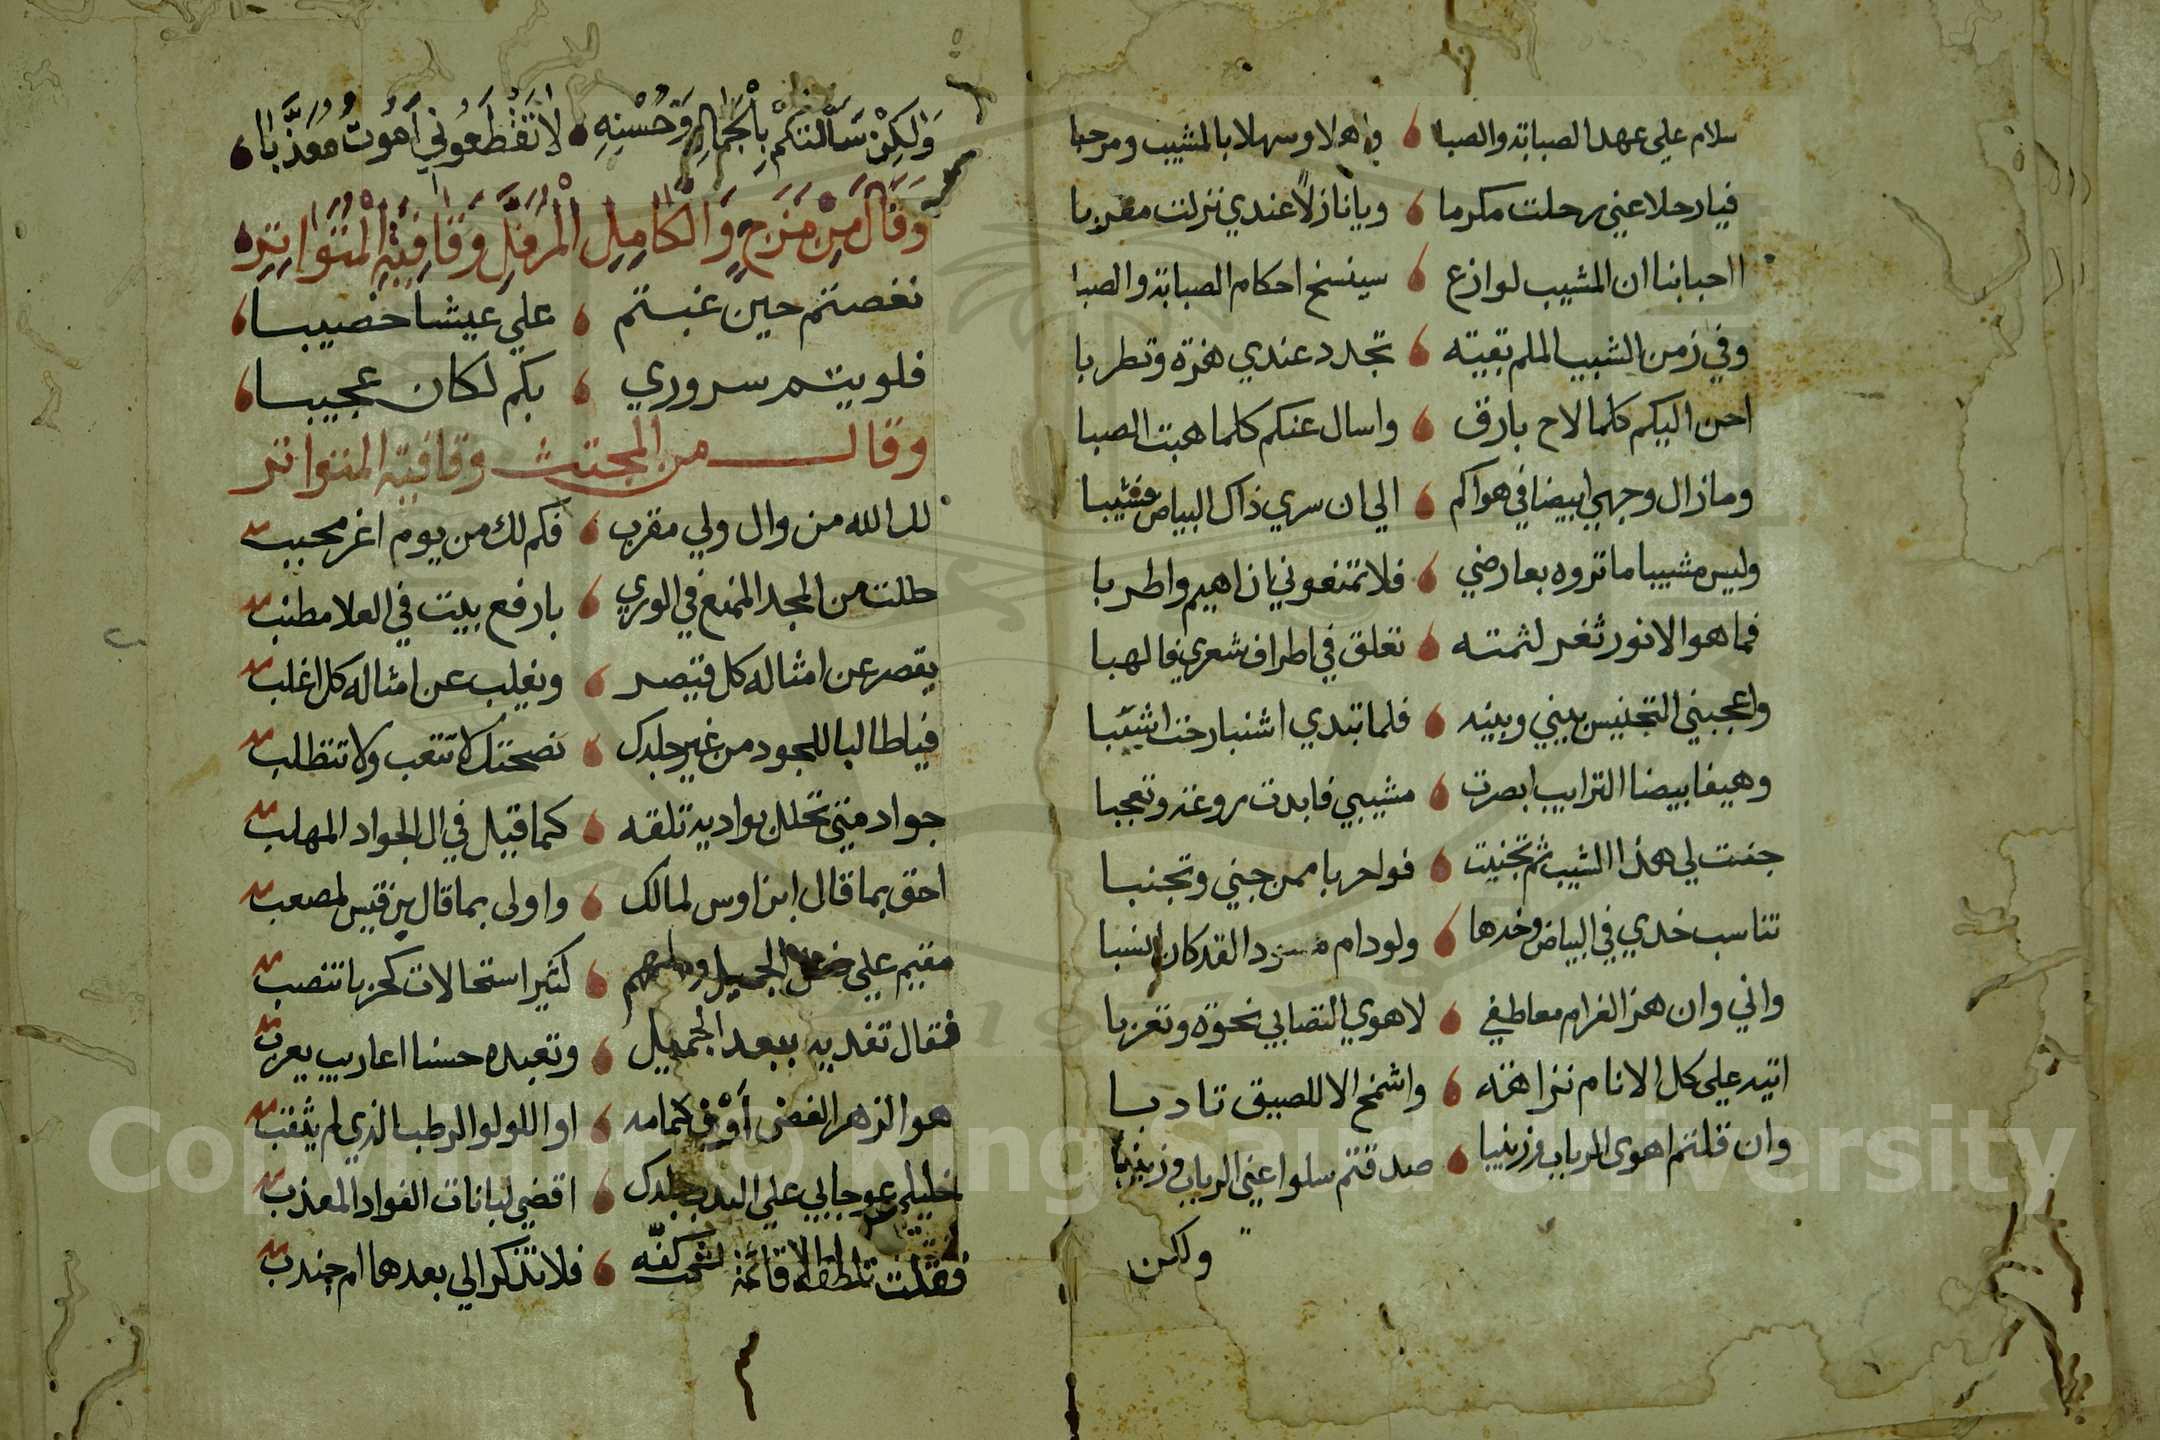 سلام علي عهد الصبابة والصبا واهلا وسهلا بالمشيب ومرحبا
فيا رحلا عني رحلت مكرما ويا نازلا عندي نزلت مقربا
ااحبابنا ان المشيب لوازع سينسخ احكام الصبابة والصبا
وفي زمن الشيب الملم بقيته تجدد عندي هزة وتطربا
احن اليكم كلما لاح بارق واسال عنكم كلما هبت الصبا
وما زال وجهي ابيضا في هواكم الي ان سري ذاك البياض فشيبا
وليس مشيبا ما تروه بعارضي فلا تمنعوني ان اهيم واطربا
فما هو الا نور ثغر لثمته تعلق في اطراف شعري فالهبا
واعجبني التجنيس بيني وبينه فلما تبدي اشنبا رحت اشيبا
وهيفا بيضا الترايب ابصرت مشيبي فابدت روعة وتعجبا
جنت لي هذا الشيب ثم تجنبت فواحربا ممن جني وتجنبا
تناسب خدي في البياض وخدها ولو دام مسودا لقد كان انسبا
واني وان هز الغرام معاطفي لاهوي التصابي نخوة وتعزبا
اتيه علي كل الانام نزاهة واشمخ الا للصيق تادبا
وان قلتم اهوي الرباب وزينبا صدقتم سلوا عني الرباب وزينبا
ولكن
وَلٰكِنْ سَأَلْتُكُمْ بِالْجَمَالِ وَحُسْنِهِ لَا تَقْطَعُونِي أَمُوتُ مُعَذَّبَا
وَقَالَ مِنْ مَزَجٍ وَالْكَامِلِ الْمُرَفَّلِ وَقَافِيَةِ الْمُتَوَاتِرِ
نغصتم حين غبتم علي عيشا خصيبا
فلو يتم سروري بكم لكان عجيبا
وقال من المجتث وقافية المتواتر
لك الله من وال ولي مقرب فكم لك من يوم اغر محبب
حللت من المجد الممنع في الوري بارفع بيت في العلا مطنب
يقصر عن امثاله كل قيصر ويغلب عن امثاله كل اغلب
فيا طالبا للجود من غير جلدك نصحتك لا تتعب ولا تتطلب
جواد متي تحلل بواديه تلقه كما قيل في ال الجواد المهلب
احق بما قال ابن اوس لمالك واولي بما قال بن قيس لمصعب
مقيم علي الجميل كثير استحالات كحربا تنضب
فقال تفديه ببعد الجميل وتعبده حسنا اعاريب يعرب
هو الزهر الغض اوفي كمامه او اللولو الرطب الذي لم يثقب
خليلي عوجا بي علي الندب جلدك اقضي لبانات الفواد المعذب
فقلت فلا تذكرا لي بعدها ام جندب